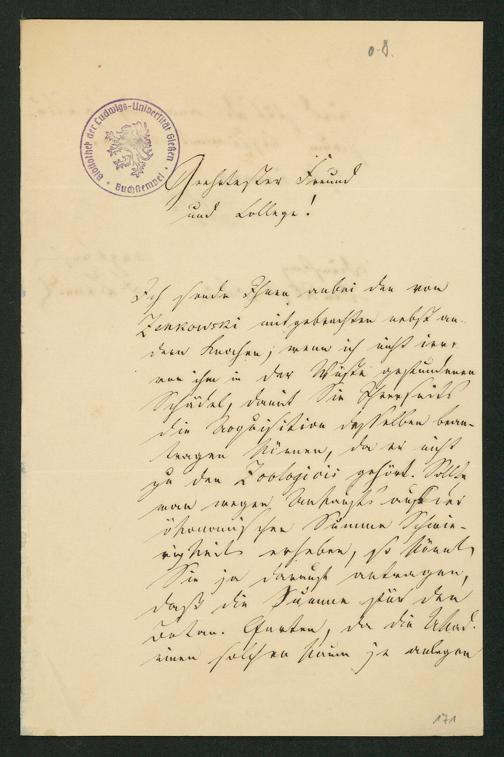 o. D.
Bibliothek der Ludwigs-Universität Gießen · Buchstempel ·
Geehrtester Freund
und College!
Ich sende Ihnen anbei den von
Zenkowski mitgebrachten nebst an-
dern Knochen, wenn ich nicht irre,
von ihm in der Wüste gefundenen
Schädel, damit Sie Ihrerseits
die Acquisition desselben bean-
tragen können, da er nicht
zu den Zoologicis gehört. Sollte
man wegen Ankaufs aus der
ökonomischen Summe Schwie-
rigkeit erheben, so könnt
Sie ja darauf antragen,
daß die Summe für den
Botan. Garten, da die Akad.
einen solchen kaum je anlegen
171